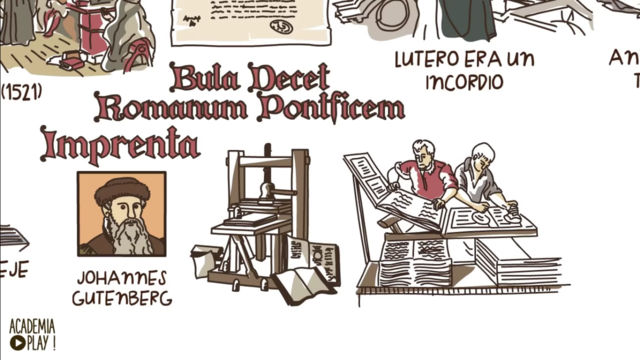 LUTERO ERA UN
INCORDIO
AN
T
(1521)
Bula Decet
Romanum Pontficem
Imprenta
EJE
JOHANNES
GUTENBERG
ACADEMIA
PLAY!